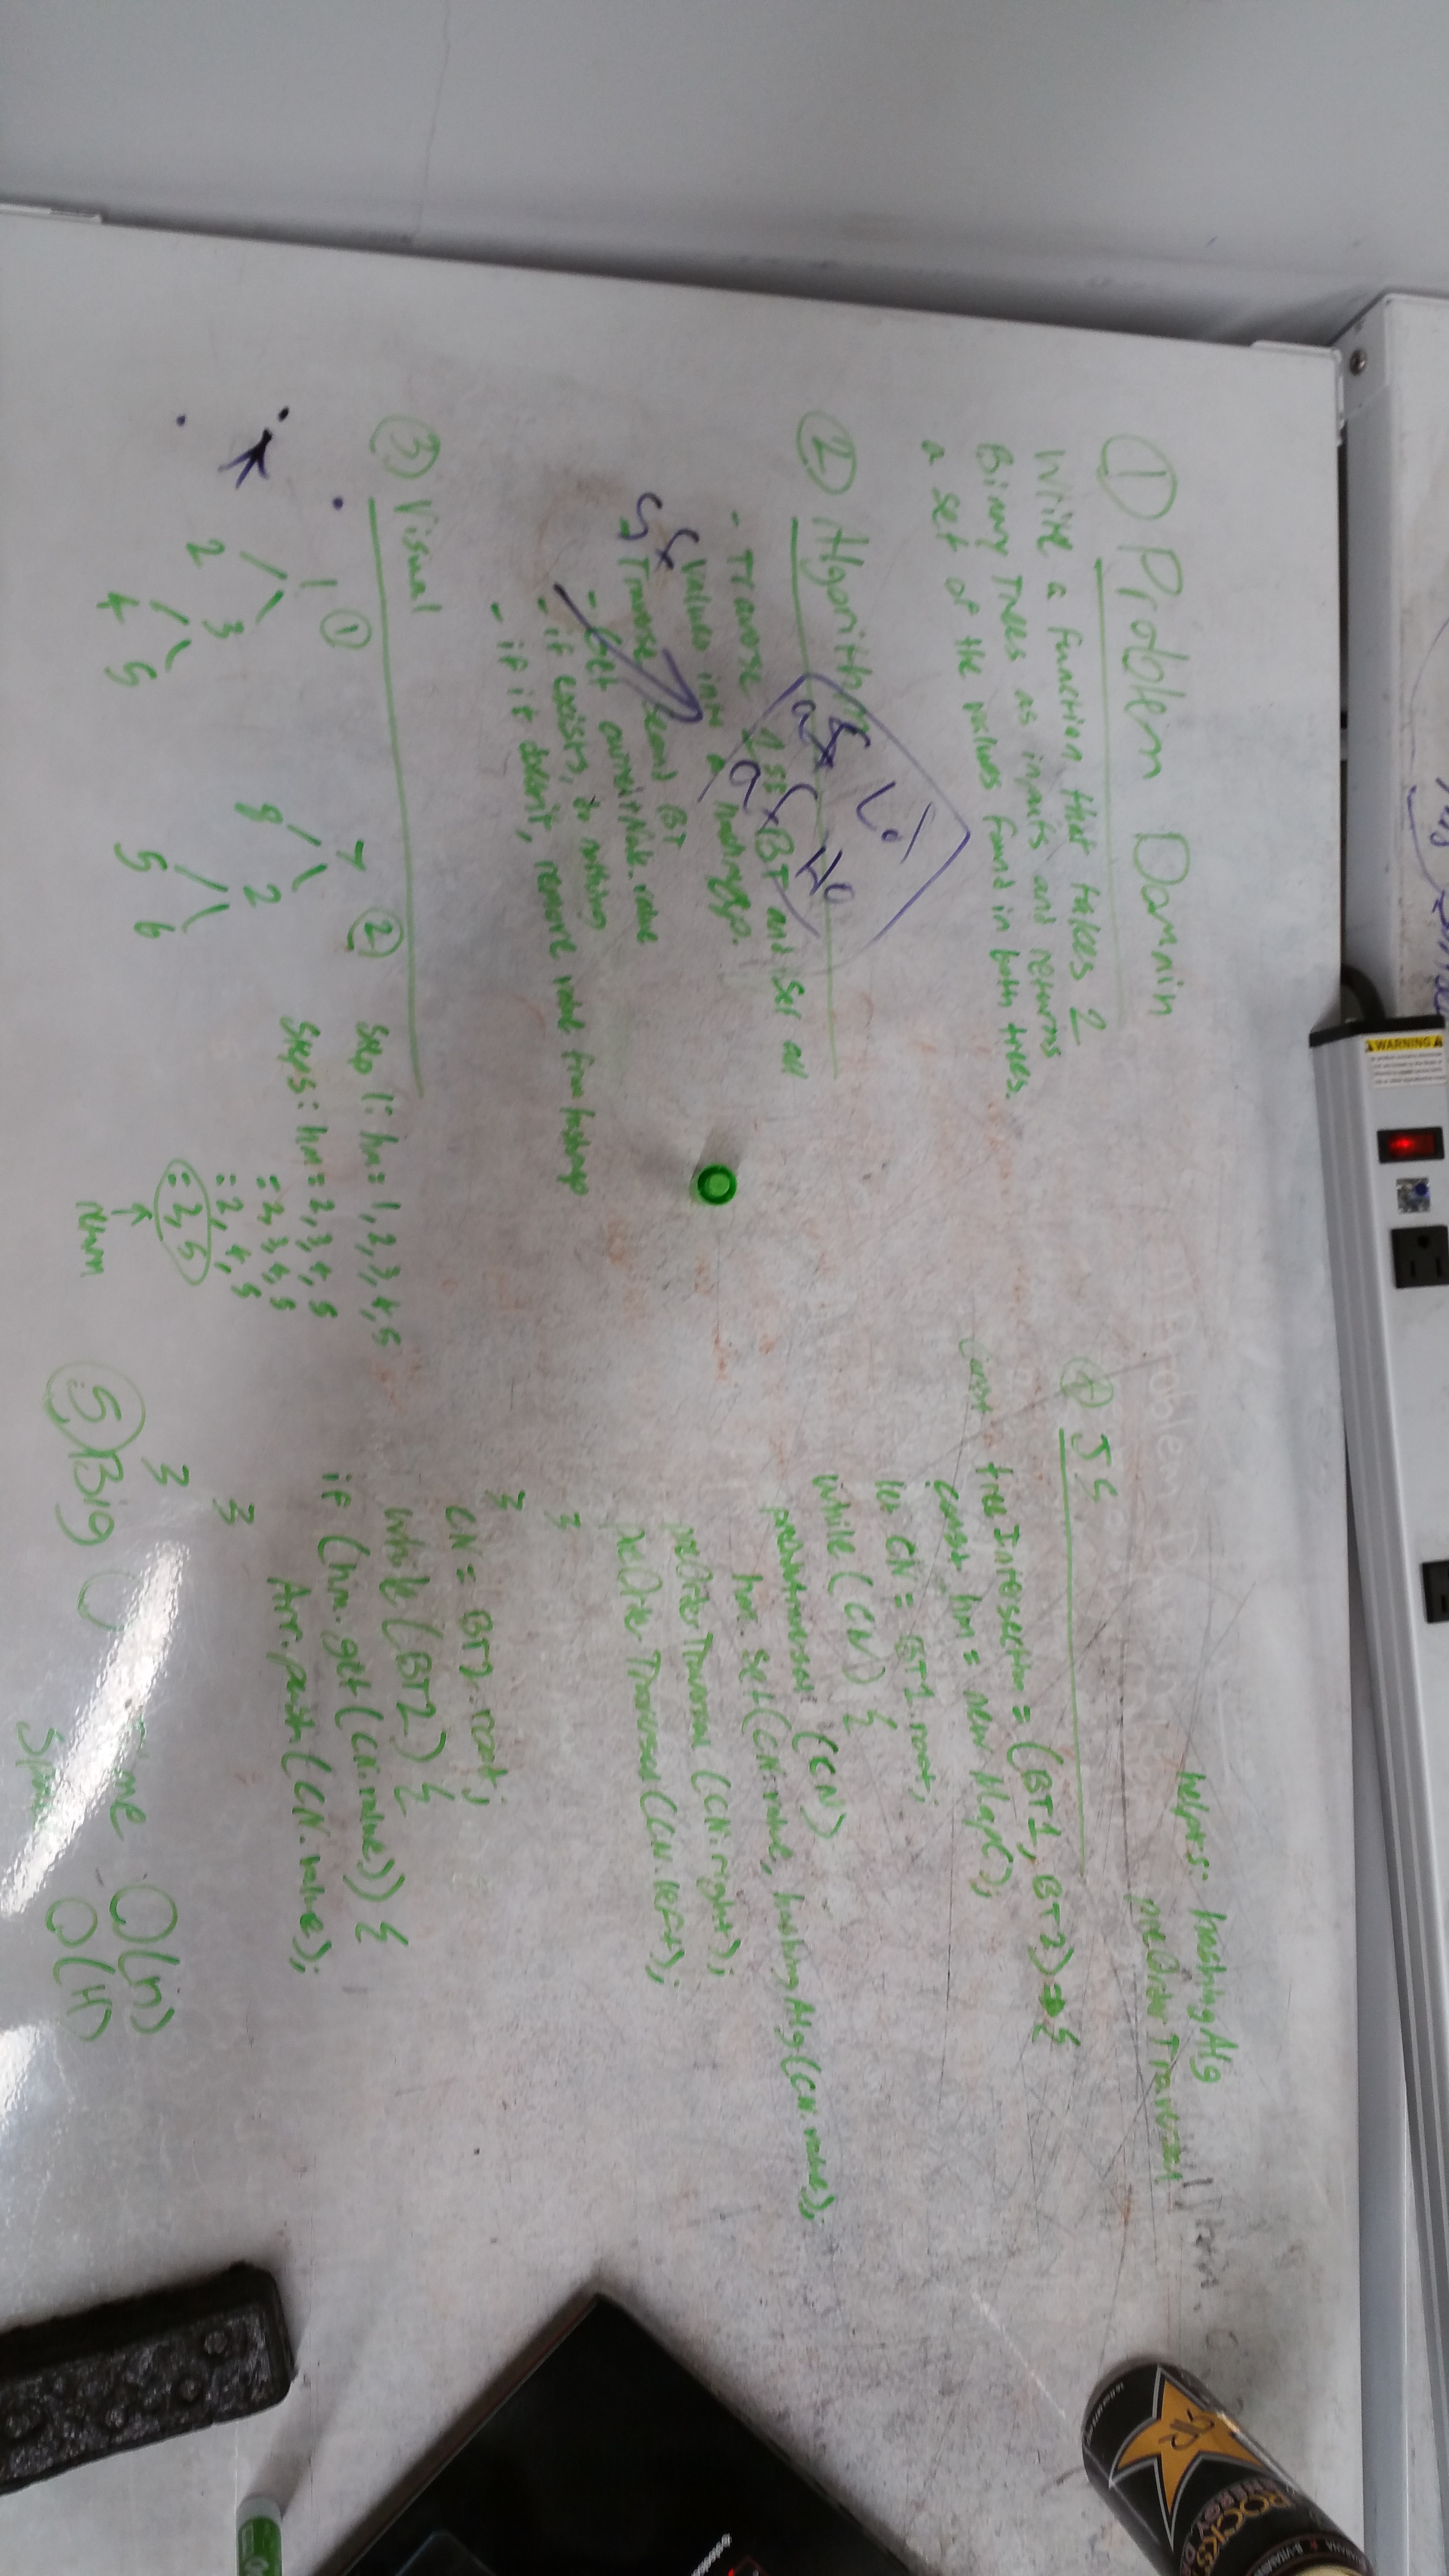 ① Problem Domain
Write a function that takes 2
Binary Trees as inputs and returns
a set of the values found in both trees.
② Algorithm
- Traverse 1st BT and set all
values into a hashmap.
Traverse second BT
- Get currentNode.value
- if exists, do nothing
- if it doesn't, remove value from hashmap
③ Visual
①
1
2 3
4 5
②
7
8 2
5 6
Step 1: hm = 1, 2, 3, 4, 5
Steps: hm = 2, 3, 4, 5
= 2, 3, 4, 5
= 2, 4, 5
= 2, 5
return
helpers: hashingAlg
preOrderTraversal
④ JS
const treeIntersection = (BT1, BT2) => {
const hm = new Map();
let CN = BT1.root;
while (CN) {
(CN)
hm.set(CN.value, hashingAlg(CN.value);
preOrderTraversal (CN.right);
preOrderTraversal (CN.left);
}
}
CN = BT2.root;
while (BT2) {
if (hm.get(CN.value)) {
Arr.push(CN.value);
}
}
⑤ Big O
O(n)
O(H)
WARNING
ROCKSTAR
ENERGY